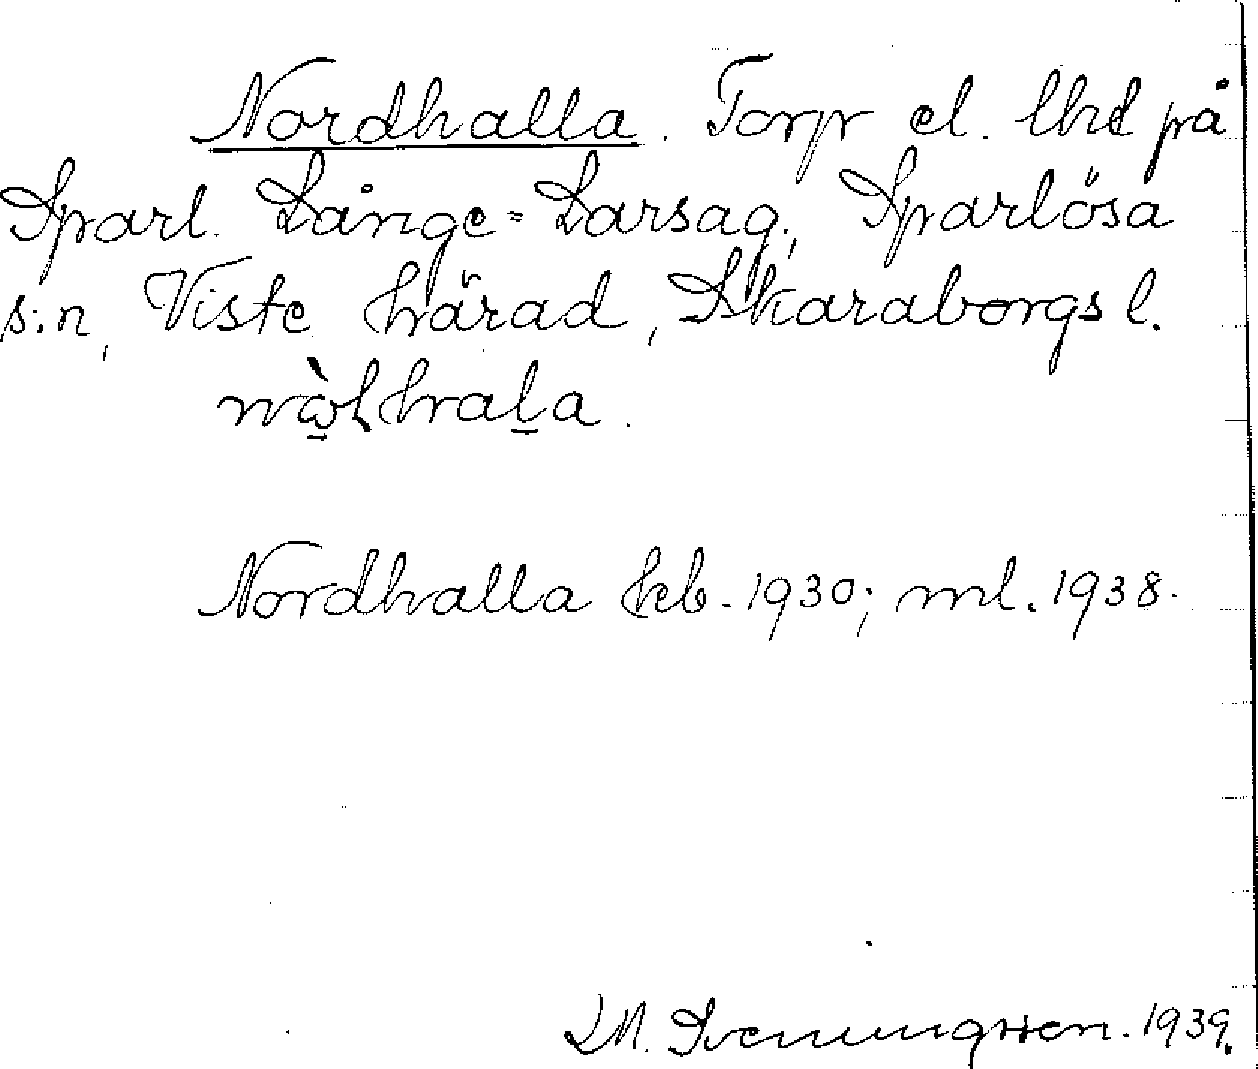 Nordhalla. Torp el. lht på
Sparl. Långe-Larsag., Sparlösa
s:n, Viste härad, Skaraborgs l.
Nordhalla heb. 1930; ml. 1938.
L M. Svenungsson. 1939.